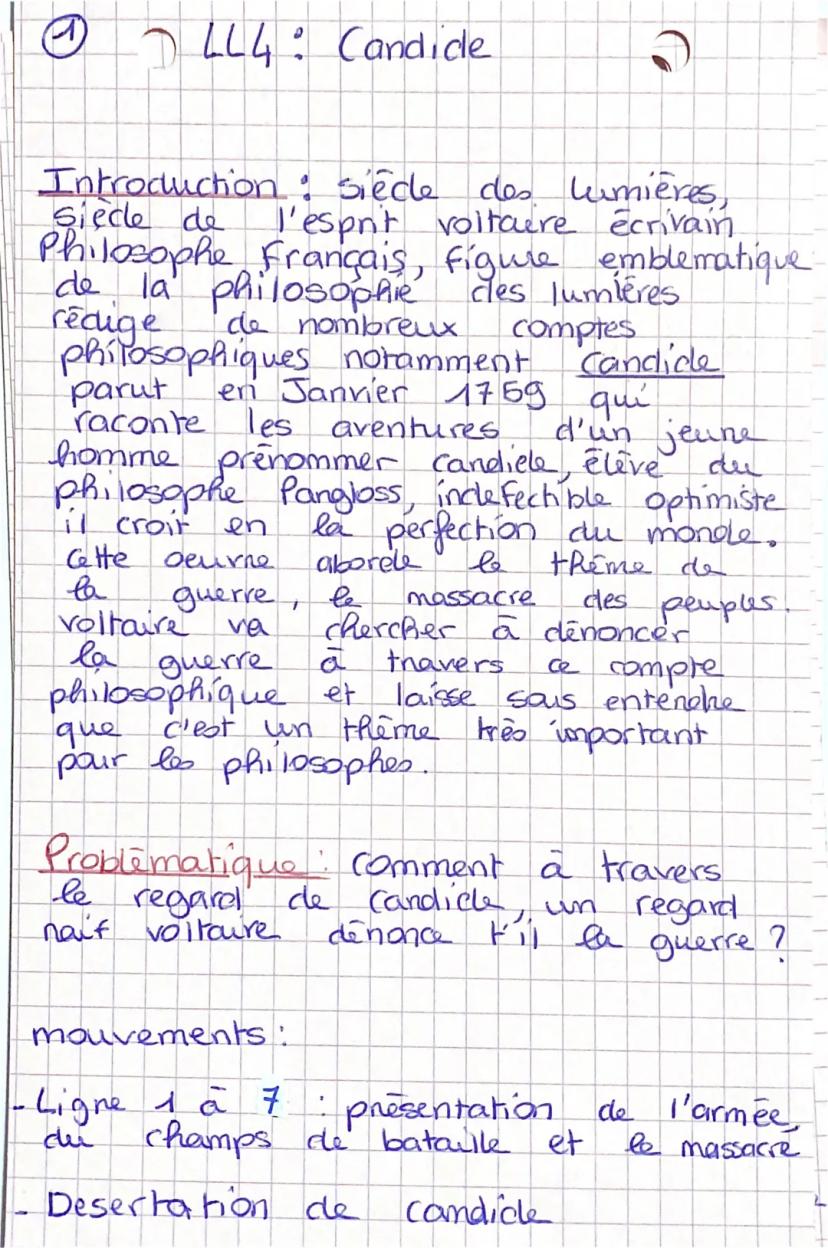 1 LL4 : Candide
Introduction : siècle des lumières,
siècle de l'esprit voltaire écrivain
Philosophe français, figure emblematique
de la philosophie des lumières
rédige de nombreux comptes
philosophiques notamment Candide
parut en Janvier 1759 qui
raconte les aventures d'un jeune
homme prénommer candide, élève du
philosophe Pangloss, indefectible optimiste
il croit en la perfection du monde.
Cette oeuvre aborde le thème de
la guerre, le massacre des peuples.
voltaire va chercher à dénoncer
la guerre à travers ce compte
philosophique et laisse sous entendre
que c'est un thème très important
pour les philosophes.
Problématique : comment à travers
le regard de Candide, un regard
naif voltaire dénonce t'il la guerre ?
mouvements :
- Ligne 1 à 7 : présentation de l'armée,
du champs de bataille et le massacre
- Desertation de candide